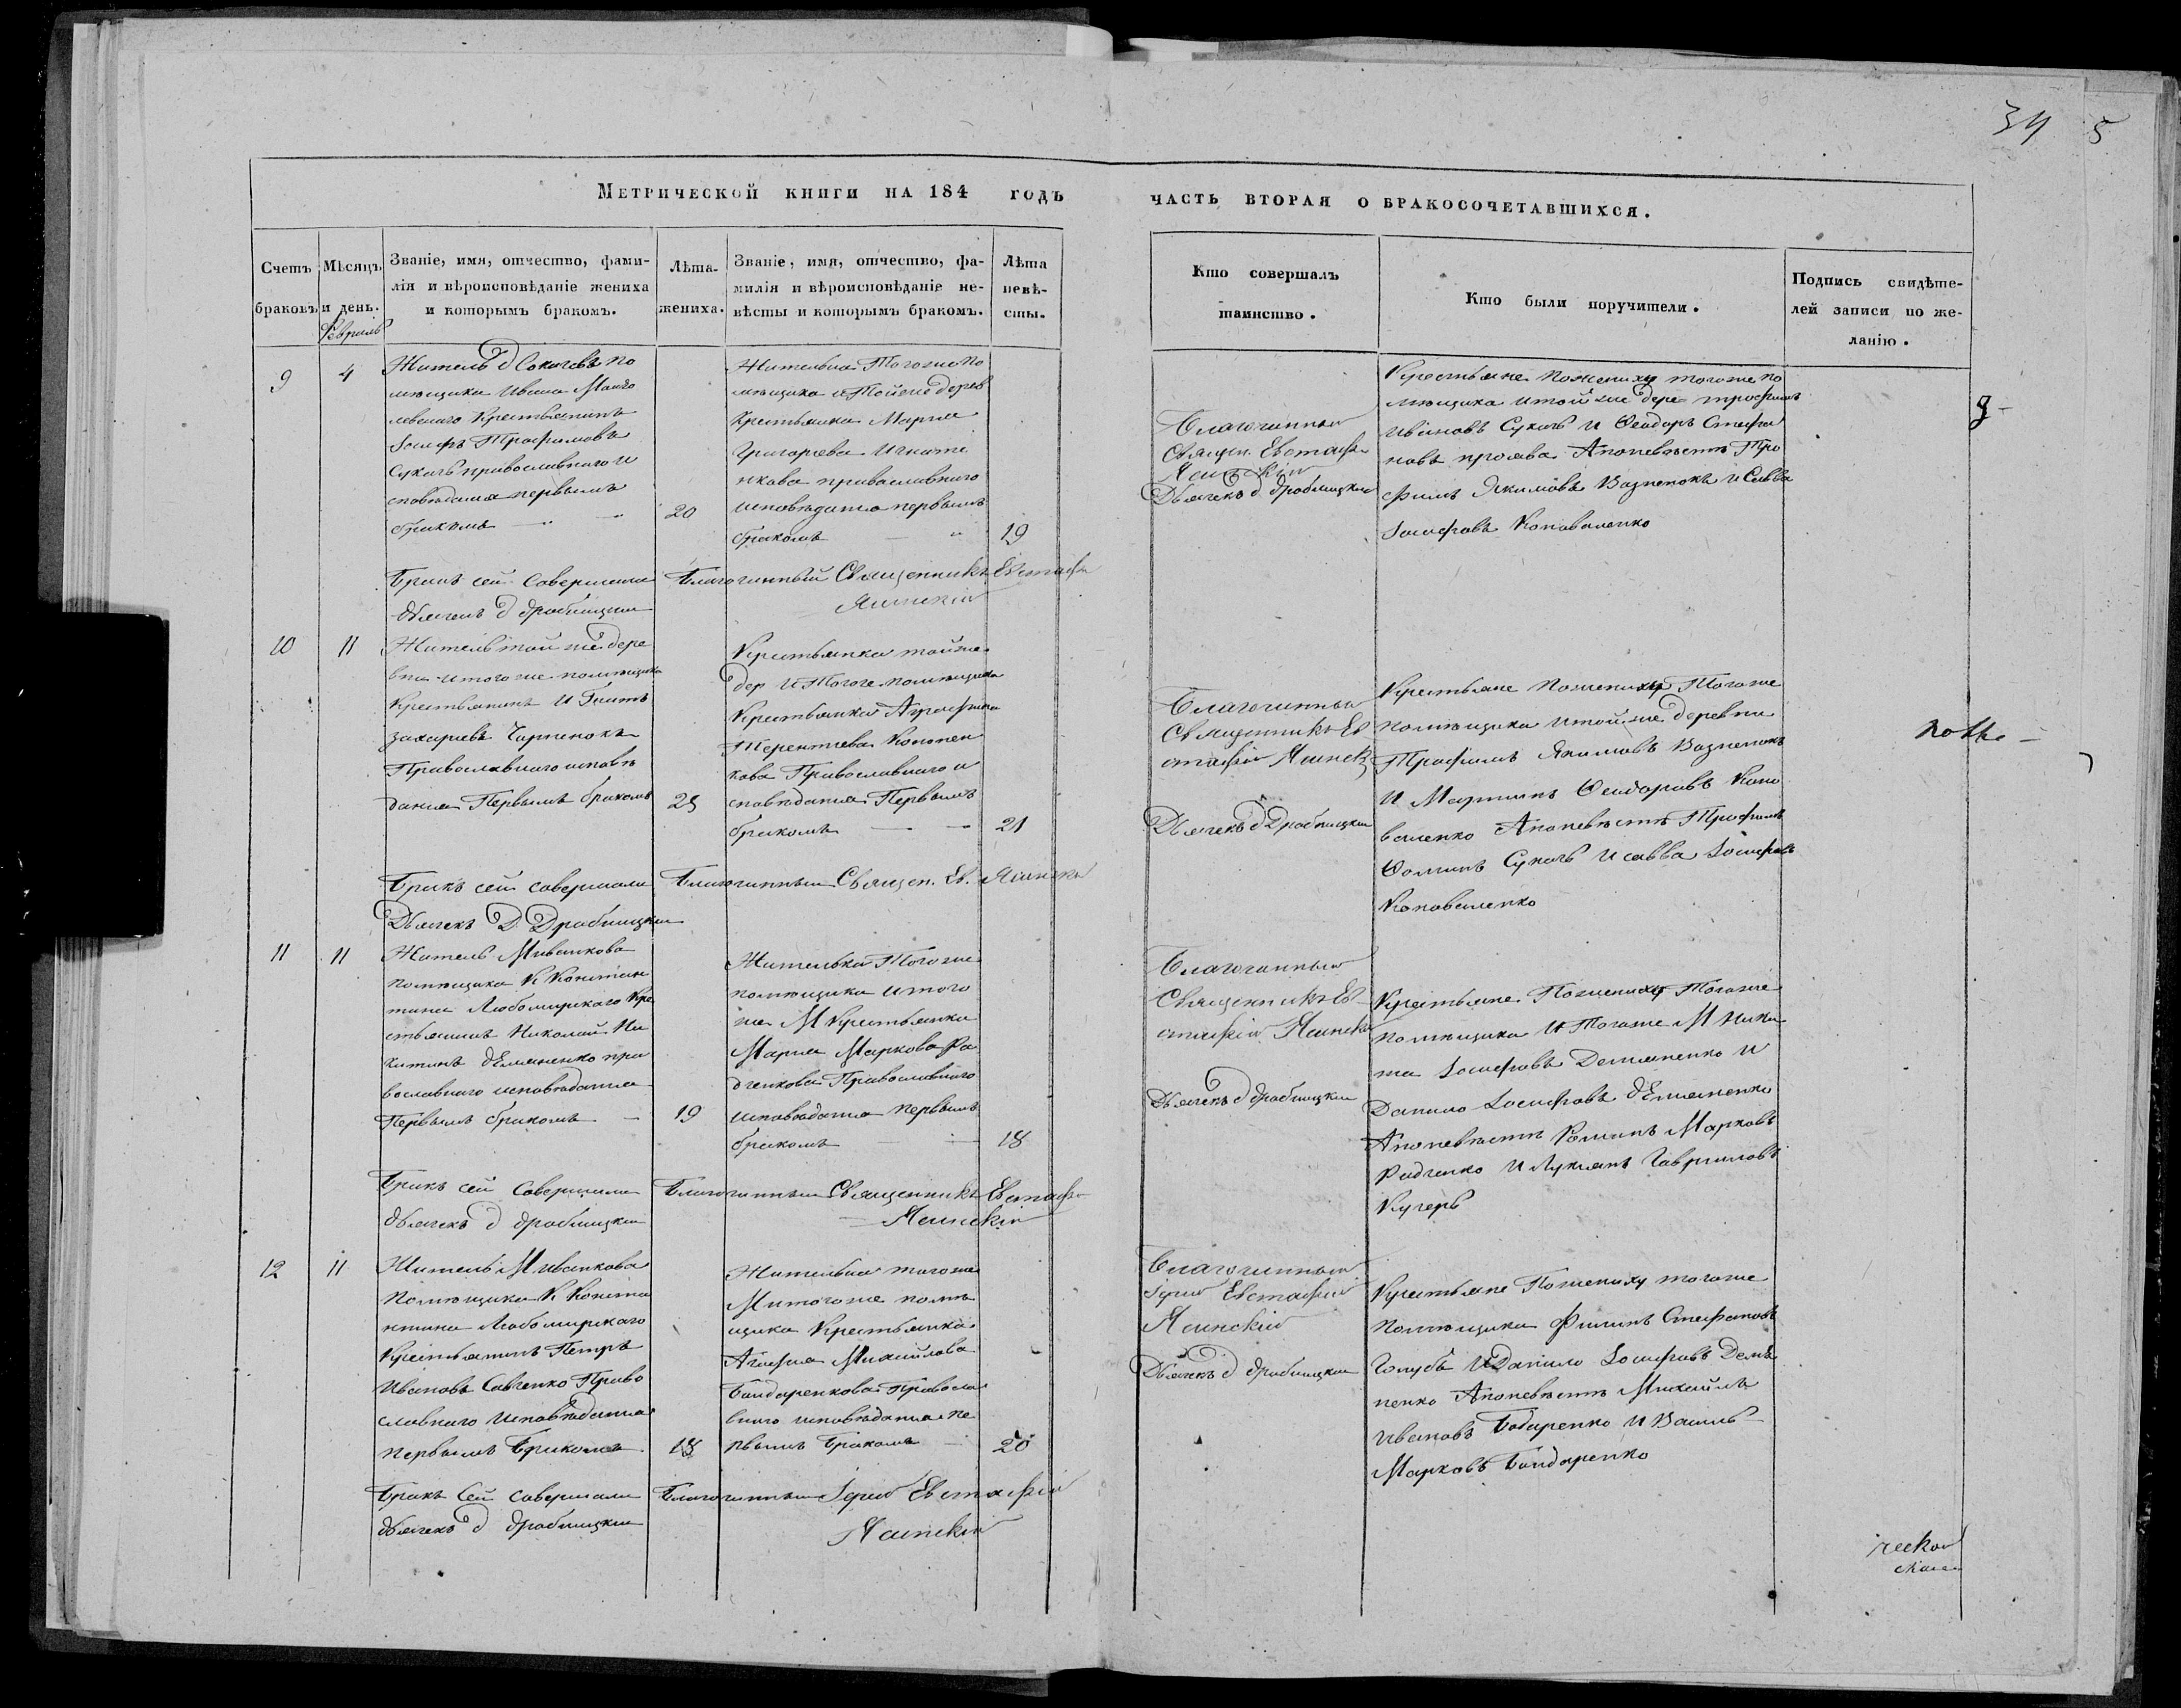 34 5
Метрической книги на 184 годъ
часть вторая о бракосочетавшихся.
Счетъ браковъ
Мѣсяцъ и день.
Званіе, имя, отчество, фами-
лія и вѣроисповѣданіе жениха
и которымъ бракомъ.
Лѣта
жениха.
Званіе, имя, отчество, фа-
милія и вѣроисповѣданіе не-
вѣсты и которымъ бракомъ.
Лѣта
невѣ-
сты.
Кто совершалъ
таинство.
Кто были поручители.
Подпись свидѣте-
лей записи по же-
ланію.
Февраль
9
4
Житель д по
мѣщика Ивана
Крестьянинъ
Іосифъ Трофимовъ
Сукачь православнаго и
сповѣдания первымъ
бракомъ
20
Жителька Тогоже по
мѣщика и Тойже дерев
Крестьянка Мария
Григорьева Игнате
нкова православнаго
исповѣдания первымъ
бракомъ
19
Благочинный
Священ. Евстафи
Ясинскій
Дьячекъ д Дробницкий
Крестьяне пожениху тогоже по
мѣщика итой же дере трофимъ
Ивановъ Сукачь и Феодоръ Стефа
новъ Апоневѣсте Тро
фимъ Якимовъ Вазненокъ и Савва
Іосифовъ Коноваленко
Бракъ сей совершили Благочинный Священникъ Евстафи
Ясинскій
дьячекъ д дробницкий
10
11
Житель той же дере
вни итого же помѣщика
Крестьянинъ Игнатъ
захариевъ Чарненокъ
Православнаго исповѣ
дания Первымъ бракомъ
25
Крестьянка тойже
дер и Тогоже помѣщика
Крестьянка Агрофина
Терентиева Кононен
кова Православнаго и
сповѣдания Первымъ
бракомъ
21
Благочинный
Священникъ Ев
стафій Ясинск
Дьячекъ д Дробницкий
Крестьяне пожениху Тогоже
помѣщика итой же деревни
Трофимъ Якимовъ Вазненокъ
и Мартинъ Феодоровъ Коно
валенко Апоневѣсте Трофимъ
Фоминъ Сукачь и савва Іосифовъ
Коноваленко
Бракъ сей совершили Благочинный Священ. Ев. Ясинскій
Дьячекъ Д Дробницкий
11
11
Житель М Иванкова
помѣщика К Констан
тина Любомирскаго Кре
стьянинъ Николай Ни
китинъ дЕмяненко пра
вославнаго исповѣдания
Первымъ бракомъ
19
Жителька Тогоже
помѣщика итого
же М Крестьянка
Мария Маркова Ра
дченкова Православнаго
исповѣдания первымъ
бракомъ
18
Благочинный
Священникъ Ев
стафій Ясинскій
Дьячекъ д дробницкий
Крестьяне Пожениху Тогоже
помѣщика и Тогоже М Ники
та Іосифовъ Демяненко и
Данило Іосифовъ дЕмяненко
Апоневѣсте Романъ Марковъ
Радченко и Лукиянъ Гавриловъ
Кучеръ
Бракъ сей Совершили Благочинный Священникъ Евстафи
Ясинскій
дьячекъ д дробницкий
12
11
Житель М Иванкова
Помѣщика К Конста
нтина Любомирскаго
Крестьянинъ Петръ
Ивановъ Савченко Право
славнаго исповѣдания
первымъ Бракомъ
18
Жителька тогоже
М итогоже помѣ
щика Крестьянка
Агафия Михайлова
Бондаренкова Правосла
внаго исповѣдания пе
рвымъ Бракомъ
20
Благочинный
Іерей Евстафий
Ясинскій
Дьячекъ д дробницкий
Крестьяне Пожениху тогоже
помѣщика Филипъ Стефановъ
Голубъ и Данило Іосифовъ Демя
ненко Апоневѣсте Михайлъ
Ивановъ Бодаренко и Василь
Марковъ Бондаренко
Бракъ Сей совершили Благочинный Іерей Евстафій
Ясинскій
дьячекъ д дробницкий